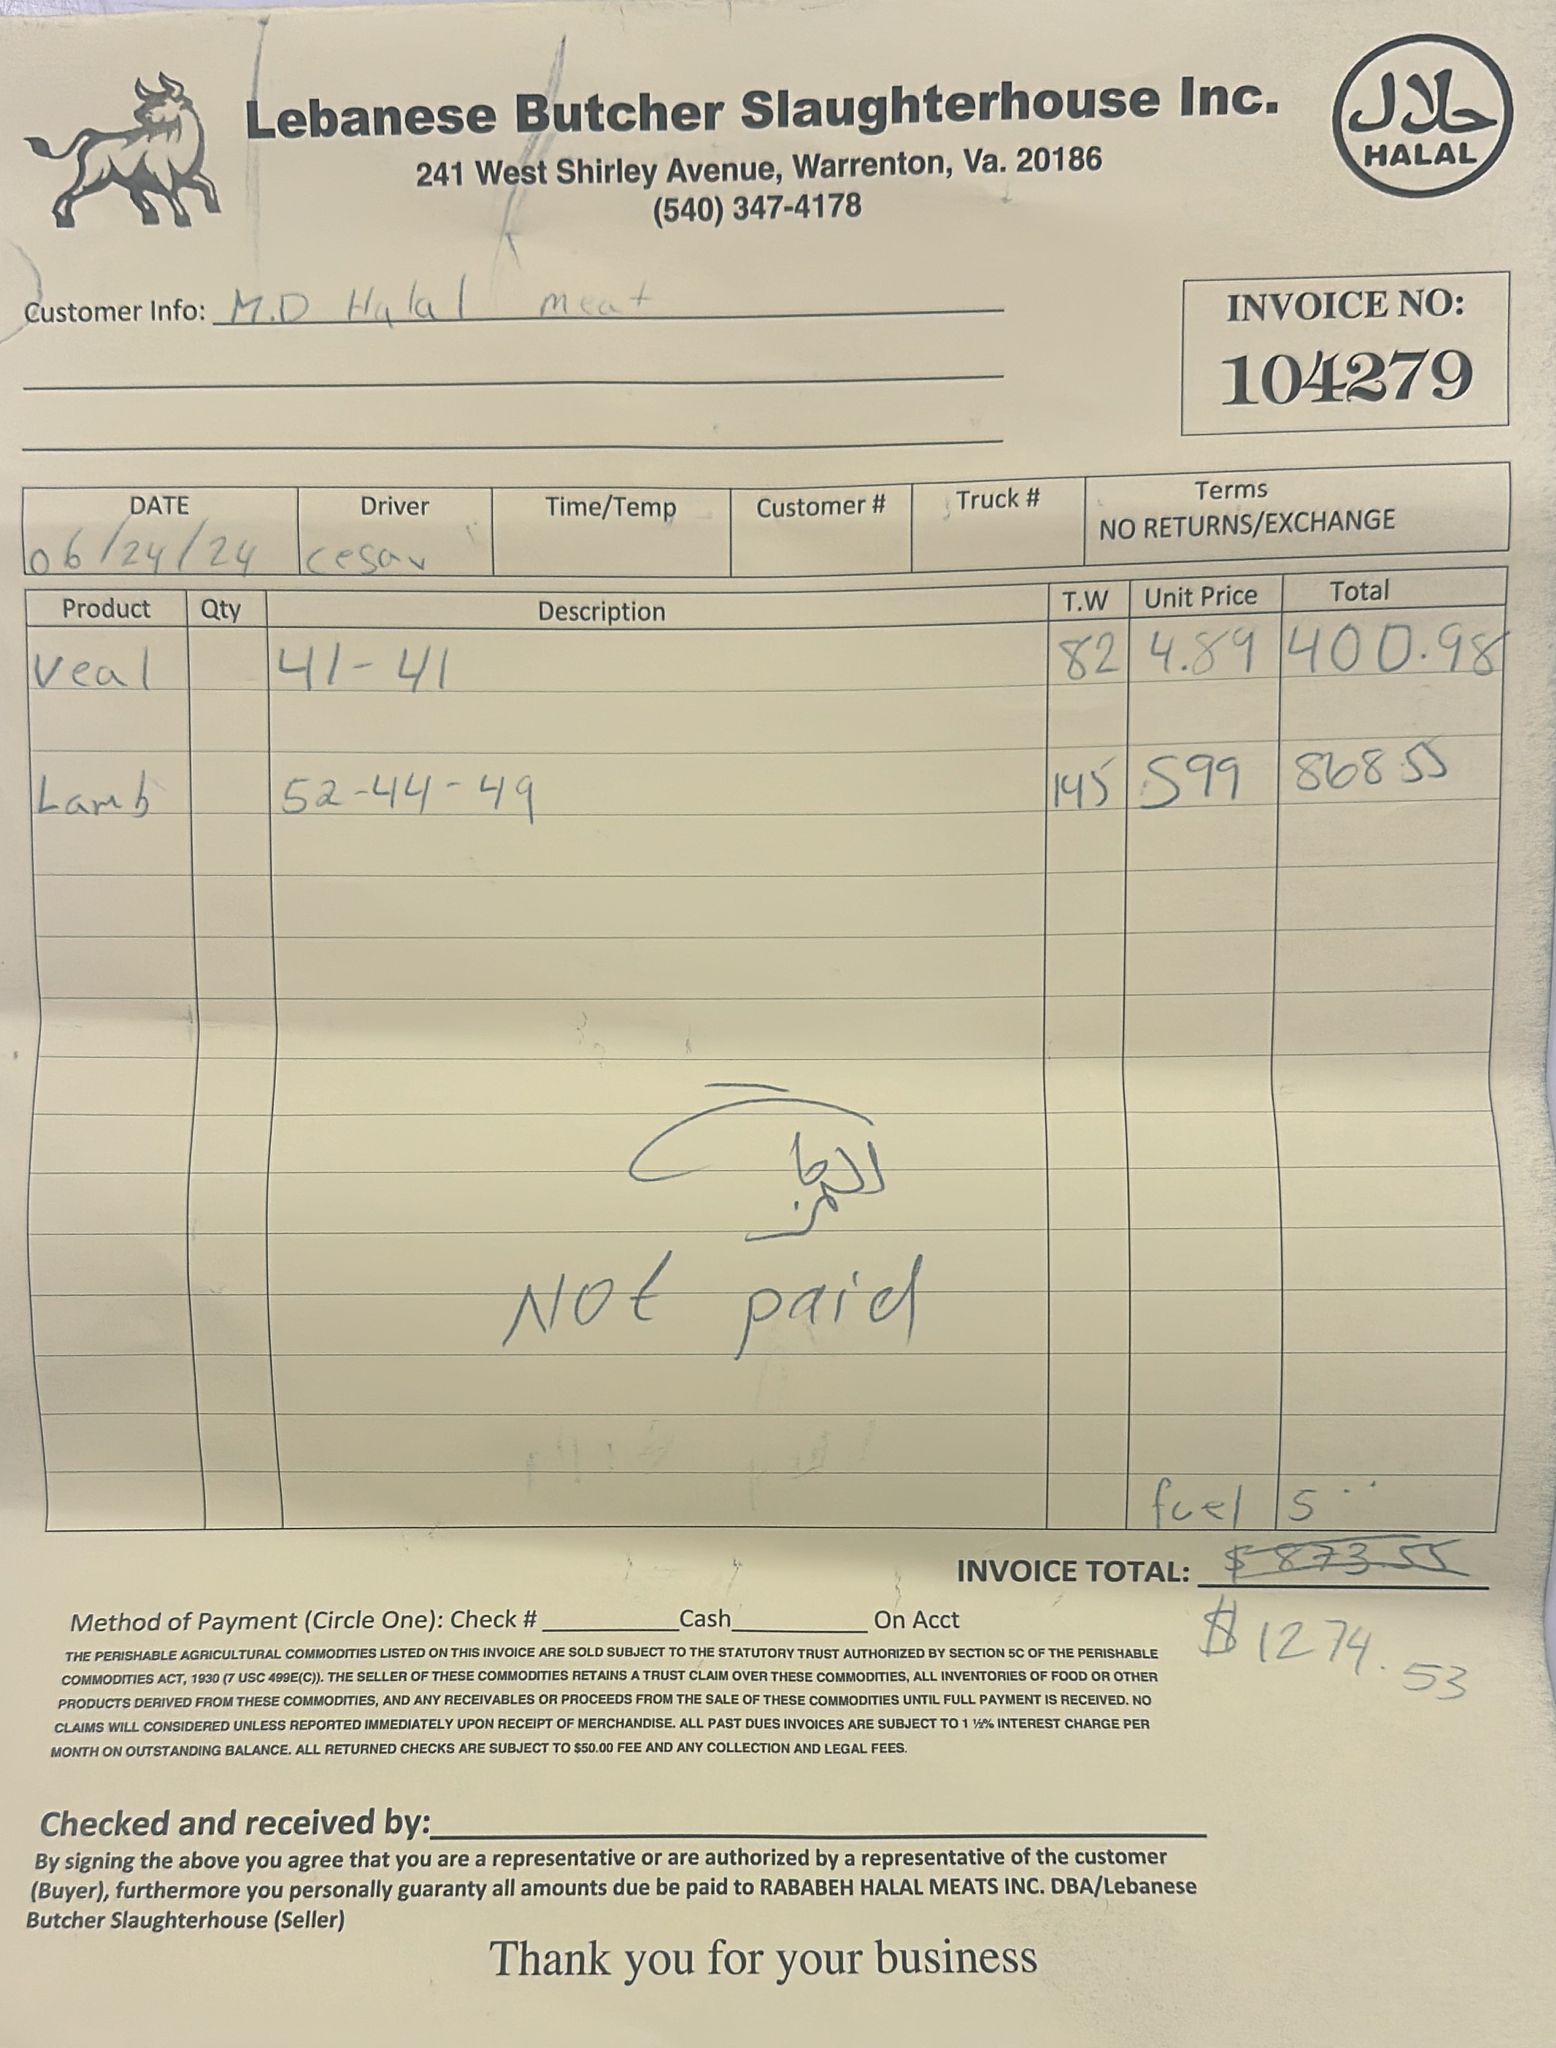 Lebanese Butcher Slaughterhouse Inc.
حلال
HALAL
241 West Shirley Avenue, Warrenton, Va. 20186
(540) 347-4178
Customer Info: M.D Halal meat
INVOICE NO:
104279
DATE Driver Time/Temp Customer # Truck # Terms
NO RETURNS/EXCHANGE
06/24/24 cesar
Product Qty Description T.W Unit Price Total
Veal 41-41 82 4.89 400.98
Lamb 52-44-49 145 599 868.55
NOt paid
fuel 5
INVOICE TOTAL: $ 873.55
$ 1274.53
Method of Payment (Circle One): Check # Cash On Acct
THE PERISHABLE AGRICULTURAL COMMODITIES LISTED ON THIS INVOICE ARE SOLD SUBJECT TO THE STATUTORY TRUST AUTHORIZED BY SECTION 5C OF THE PERISHABLE
COMMODITIES ACT, 1930 (7 USC 499E(C)). THE SELLER OF THESE COMMODITIES RETAINS A TRUST CLAIM OVER THESE COMMODITIES, ALL INVENTORIES OF FOOD OR OTHER
PRODUCTS DERIVED FROM THESE COMMODITIES, AND ANY RECEIVABLES OR PROCEEDS FROM THE SALE OF THESE COMMODITIES UNTIL FULL PAYMENT IS RECEIVED. NO
CLAIMS WILL CONSIDERED UNLESS REPORTED IMMEDIATELY UPON RECEIPT OF MERCHANDISE. ALL PAST DUES INVOICES ARE SUBJECT TO 1 ½% INTEREST CHARGE PER
MONTH ON OUTSTANDING BALANCE. ALL RETURNED CHECKS ARE SUBJECT TO $50.00 FEE AND ANY COLLECTION AND LEGAL FEES.
Checked and received by:
By signing the above you agree that you are a representative or are authorized by a representative of the customer
(Buyer), furthermore you personally guaranty all amounts due be paid to RABABEH HALAL MEATS INC. DBA/Lebanese
Butcher Slaughterhouse (Seller)
Thank you for your business